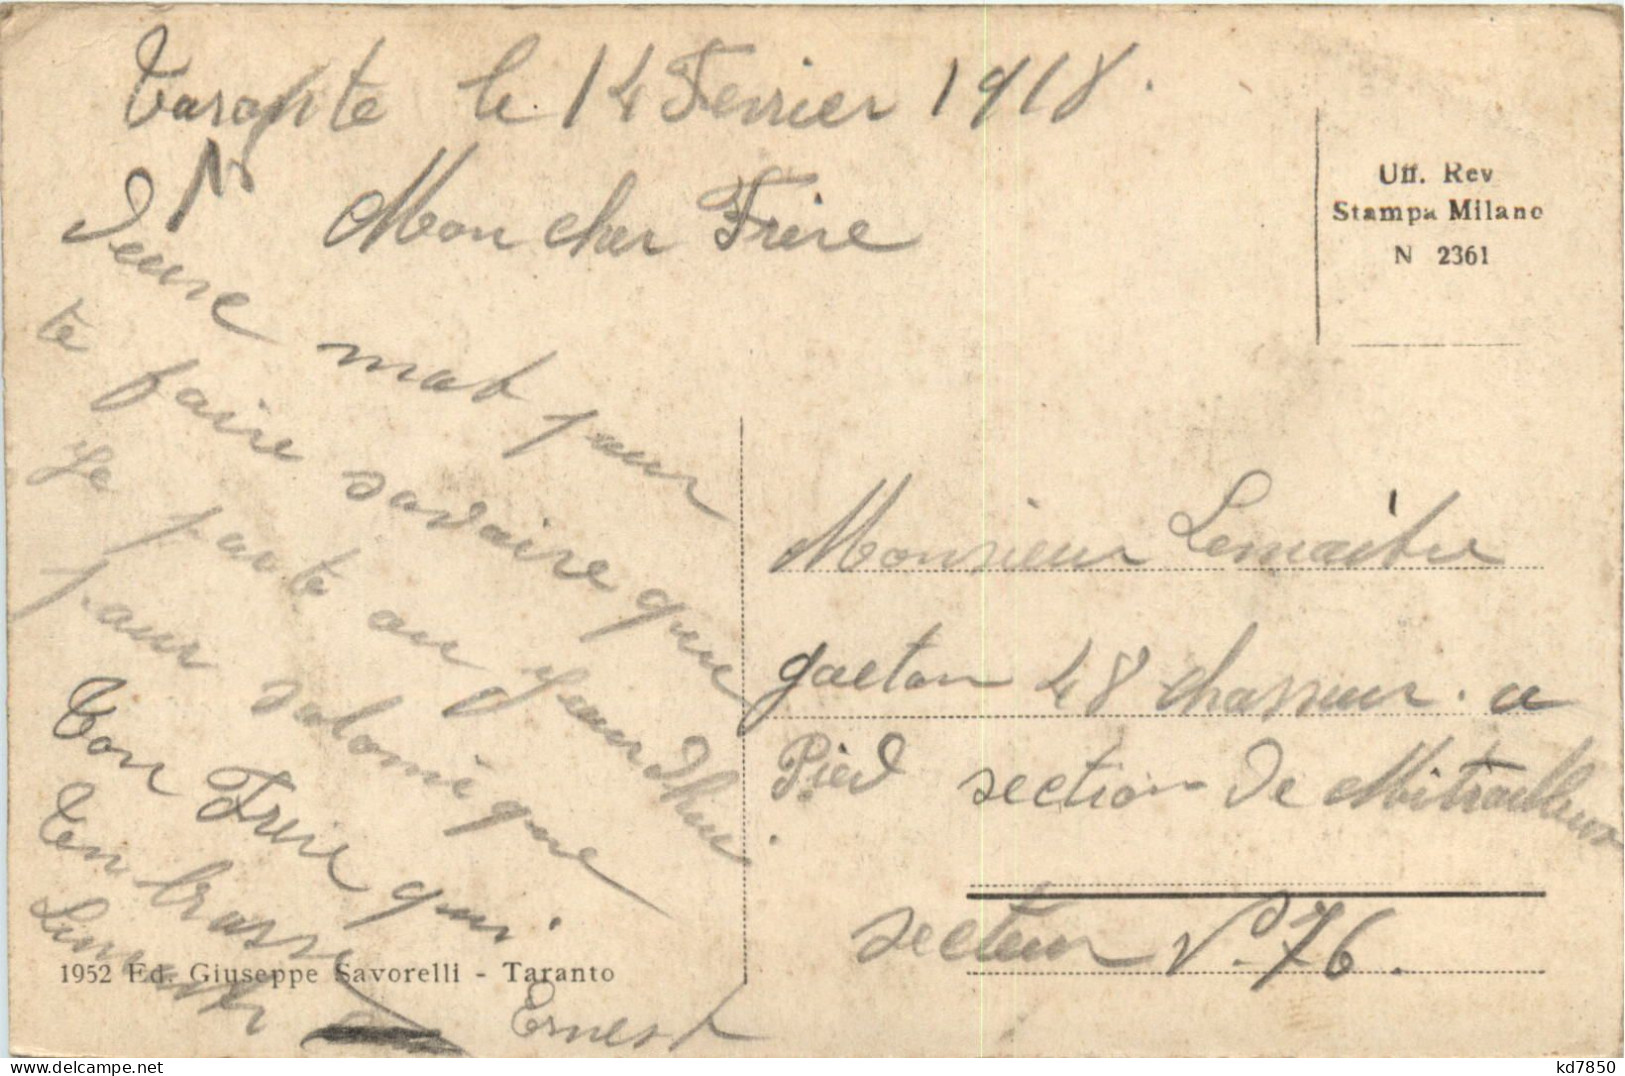 Tarante le 14 Fevrier 1918.
Mon cher Frère
Deuse mot pour
te faire savoire que
Je parte au Jourdhui.
pour salonique
Ton Frère qui.
t'en brasse
Ernest
Uff. Rev
Stampa Milano
N 2361
Monsieur Lemaitre
gaeton 48 chasseur. a
Pied section de Mitrailleur
secteur P. 76.
1952 Ed. Giuseppe Savorelli - Taranto
delcampe.net
kd7850